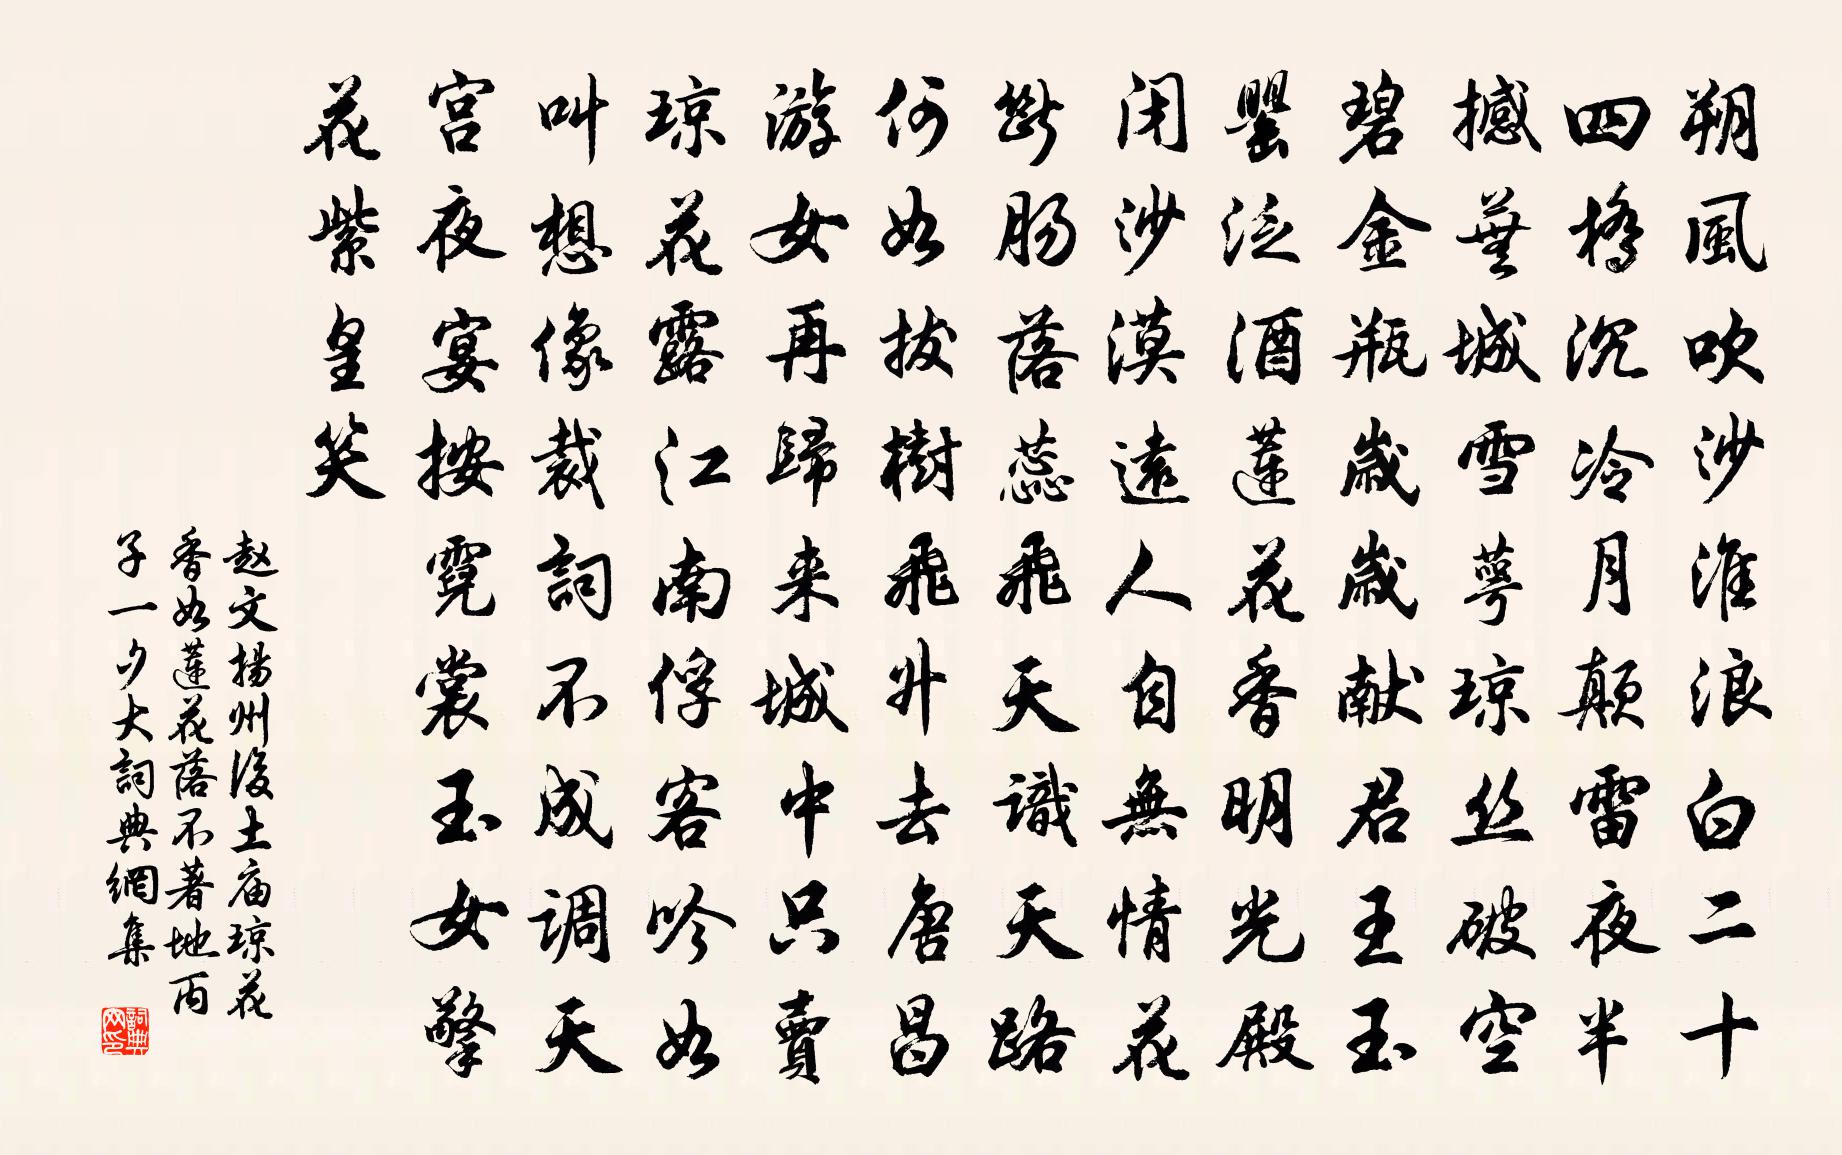 朔風吹沙淮浪白二十
四橋沉冷月顛雷夜半
撼蕪城雪萼琼丝破空
碧金瓶歲歲献君王玉
罌泛酒蓮花香明光殿
闭沙漠遠人自無情花
斷肠落蕊飛天識天路
何如拔樹飛升去唐昌
游女再歸来城中只賣
琼花露江南俘客吟如
叫想像裁詞不成调天
宫夜宴按霓裳玉女擎
花紫皇笑
赵文揚州后土庙琼花
香如蓮花落不著地丙
子一夕大詞典網集
詞典网印